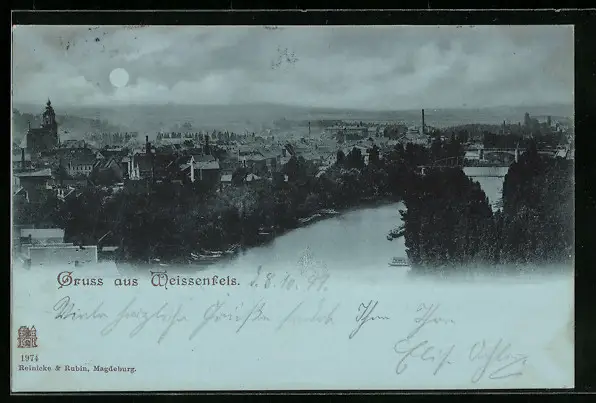 Gruss aus Weissenfels. d. 8. 10. 99.
Viele herzliche Grüße sendet Ihm Ihre
Elis.
1974
Reinicke & Rubin, Magdeburg.